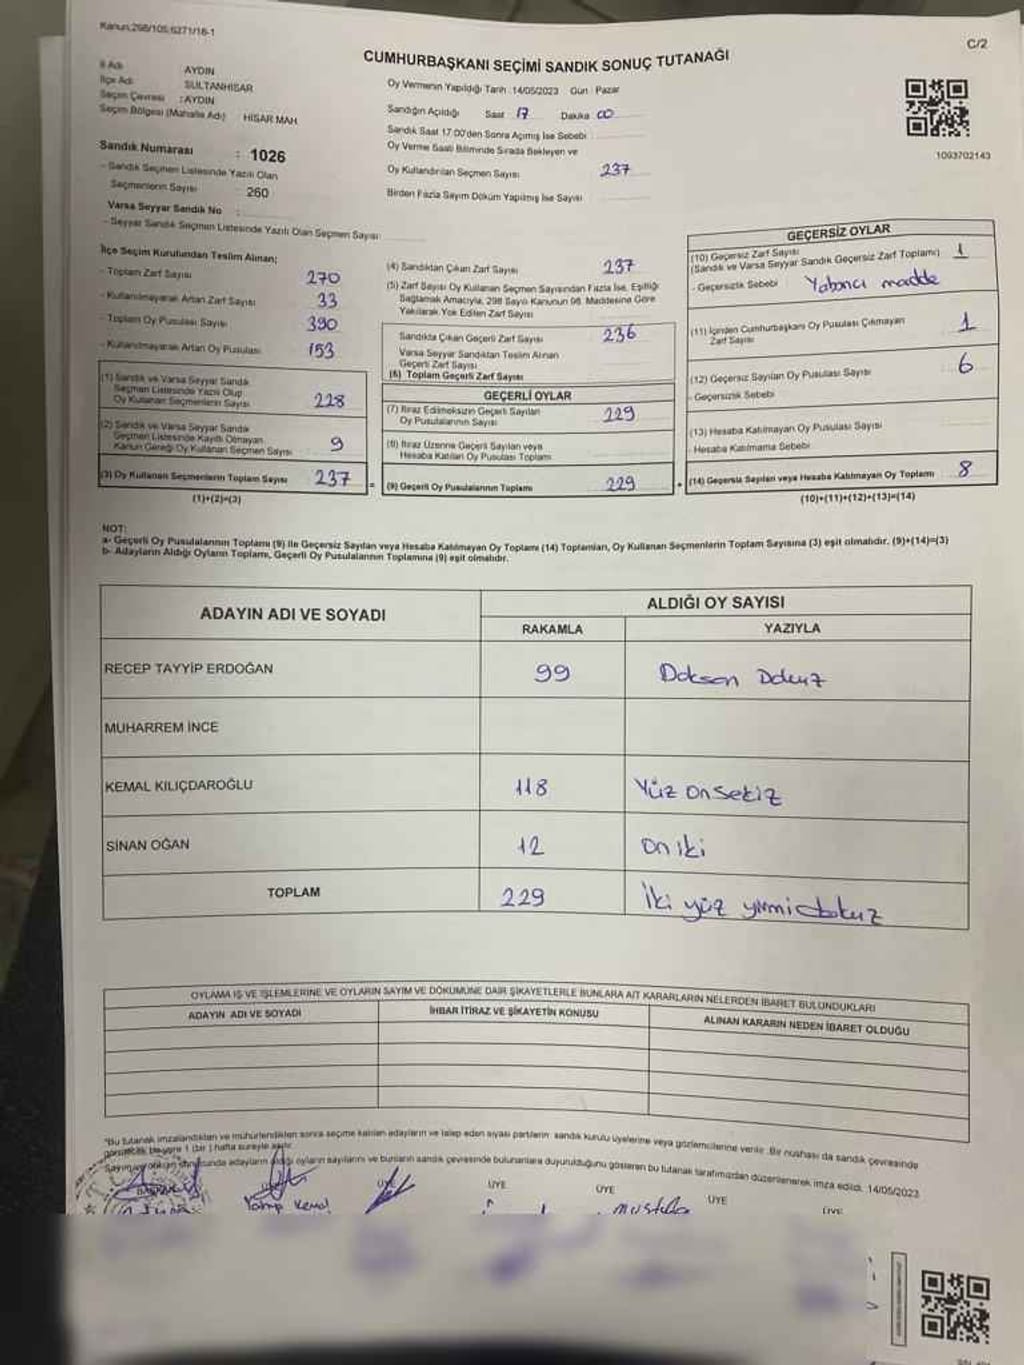 Kanun:298/105,6271/18-1
C/2
CUMHURBAŞKANI SEÇİMİ SANDIK SONUÇ TUTANAĞI
İl Adı AYDIN
İlçe Adı SULTANHİSAR
Seçim Çevresi :AYDIN
Seçim Bölgesi (Mahalle Adı) HİSAR MAH
Sandık Numarası : 1026
- Sandık Seçmen Listesinde Yazılı Olan
Seçmenlerin Sayısı 260
Varsa Seyyar Sandık No :
- Seyyar Sandık Seçmen Listesinde Yazılı Olan Seçmen Sayısı:
Oy Vermenin Yapıldığı Tarih :14/05/2023 Gün : Pazar
Sandığın Açıldığı Saat 17 Dakika 00
Sandık Saat 17:00'den Sonra Açımış İse Sebebi :
Oy Verme Saati Bitiminde Sırada Bekleyen ve
Oy Kullandırılan Seçmen Sayısı 237
Birden Fazla Sayım Döküm Yapılmış İse Sayısı
1093702143
İlçe Seçim Kurulundan Teslim Alınan;
- Toplam Zarf Sayısı 270
- Kullanılmayarak Artan Zarf Sayısı 33
- Toplam Oy Pusulası Sayısı 390
- Kullanılmayarak Artan Oy Pusulası 153
(1) Sandık ve Varsa Seyyar Sandık
Seçmen Listesinde Yazılı Olup
Oy Kullanan Seçmenlerin Sayısı 228
(2) Sandık ve Varsa Seyyar Sandık
Seçmen Listesinde Kayıtlı Olmayan
Kanun Gereği Oy Kullanan Seçmen Sayısı 9
(3) Oy Kullanan Seçmenlerin Toplam Sayısı 237 =
(1)+(2)=(3)
(4) Sandıktan Çıkan Zarf Sayısı 237
(5) Zarf Sayısı Oy Kullanan Seçmen Sayısından Fazla İse, Eşitliği
Sağlamak Amacıyla, 298 Sayılı Kanunun 98. Maddesine Göre
Yakılarak Yok Edilen Zarf Sayısı
Sandıkta Çıkan Geçerli Zarf Sayısı 236
Varsa Seyyar Sandıktan Teslim Alınan
Geçerli Zarf Sayısı
(6) Toplam Geçerli Zarf Sayısı
GEÇERLİ OYLAR
(7) İtiraz Edilmeksizin Geçerli Sayılan
Oy Pusulalarının Sayısı 229
(8) İtiraz Üzerine Geçerli Sayılan veya
Hesaba Katılan Oy Pusulası Toplamı
(9) Geçerli Oy Pusulalarının Toplamı 229 +
GEÇERSİZ OYLAR
(10) Geçersiz Zarf Sayısı
(Sandık ve Varsa Seyyar Sandık Geçersiz Zarf Toplamı) 1
- Geçersizlik Sebebi Yabancı madde
(11) İçinden Cumhurbaşkanı Oy Pusulası Çıkmayan
Zarf Sayısı 1
(12) Geçersiz Sayılan Oy Pusulası Sayısı 6
- Geçersizlik Sebebi
(13) Hesaba Katılmayan Oy Pusulası Sayısı
- Hesaba Katılmama Sebebi
(14) Geçersiz Sayılan veya Hesaba Katılmayan Oy Toplamı 8
(10)+(11)+(12)+(13)=(14)
NOT:
a- Geçerli Oy Pusulalarının Toplamı (9) ile Geçersiz Sayılan veya Hesaba Katılmayan Oy Toplamı (14) Toplamları, Oy Kullanan Seçmenlerin Toplam Sayısına (3) eşit olmalıdır. (9)+(14)=(3)
b- Adayların Aldığı Oyların Toplamı, Geçerli Oy Pusulalarının Toplamına (9) eşit olmalıdır.
ADAYIN ADI VE SOYADI ALDIĞI OY SAYISI
RAKAMLA YAZIYLA
RECEP TAYYİP ERDOĞAN 99 Doksan Dokuz
MUHARREM İNCE
KEMAL KILIÇDAROĞLU 118 Yüz onsekiz
SİNAN OĞAN 12 on iki
TOPLAM 229 İki yüz yirmidokuz
OYLAMA İŞ VE İŞLEMLERİNE VE OYLARIN SAYIM VE DÖKÜMÜNE DAİR ŞİKAYETLERLE BUNLARA AİT KARARLARIN NELERDEN İBARET BULUNDUKLARI
ADAYIN ADI VE SOYADI İHBAR İTİRAZ VE ŞİKAYETİN KONUSU ALINAN KARARIN NEDEN İBARET OLDUĞU
*Bu tutanak imzalandıktan ve mühürlendikten sonra seçime katılan adayların ve talep eden siyasi partilerin sandık kurulu üyelerine veya gözlemcilerine verilir. Bir nushası da sandık çevresinde
1 (bir) hafta süreyle asılır.
adayların aldığı oyların sayılarını ve bunların sandık çevresinde bulunanlara duyurulduğunu gösteren bu tutanak tarafımızdan düzenlenerek imza edildi. 14/05/2023
BAŞKAN ÜYE ÜYE ÜYE ÜYE ÜYE
Kemal Mustafa